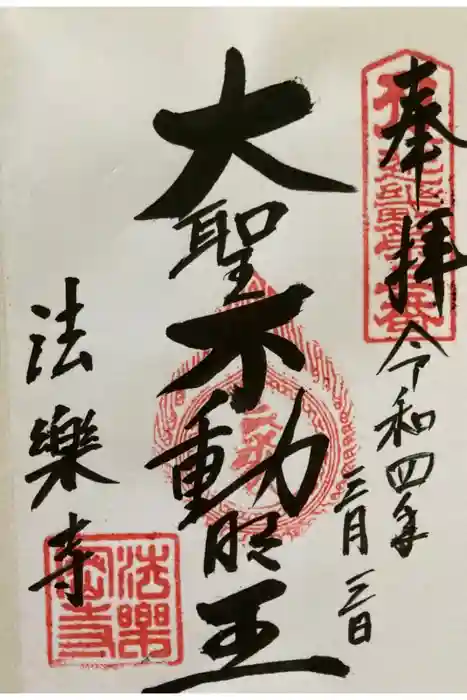 奉拝
令和四年
三月三日
大聖不動明王
法樂寺